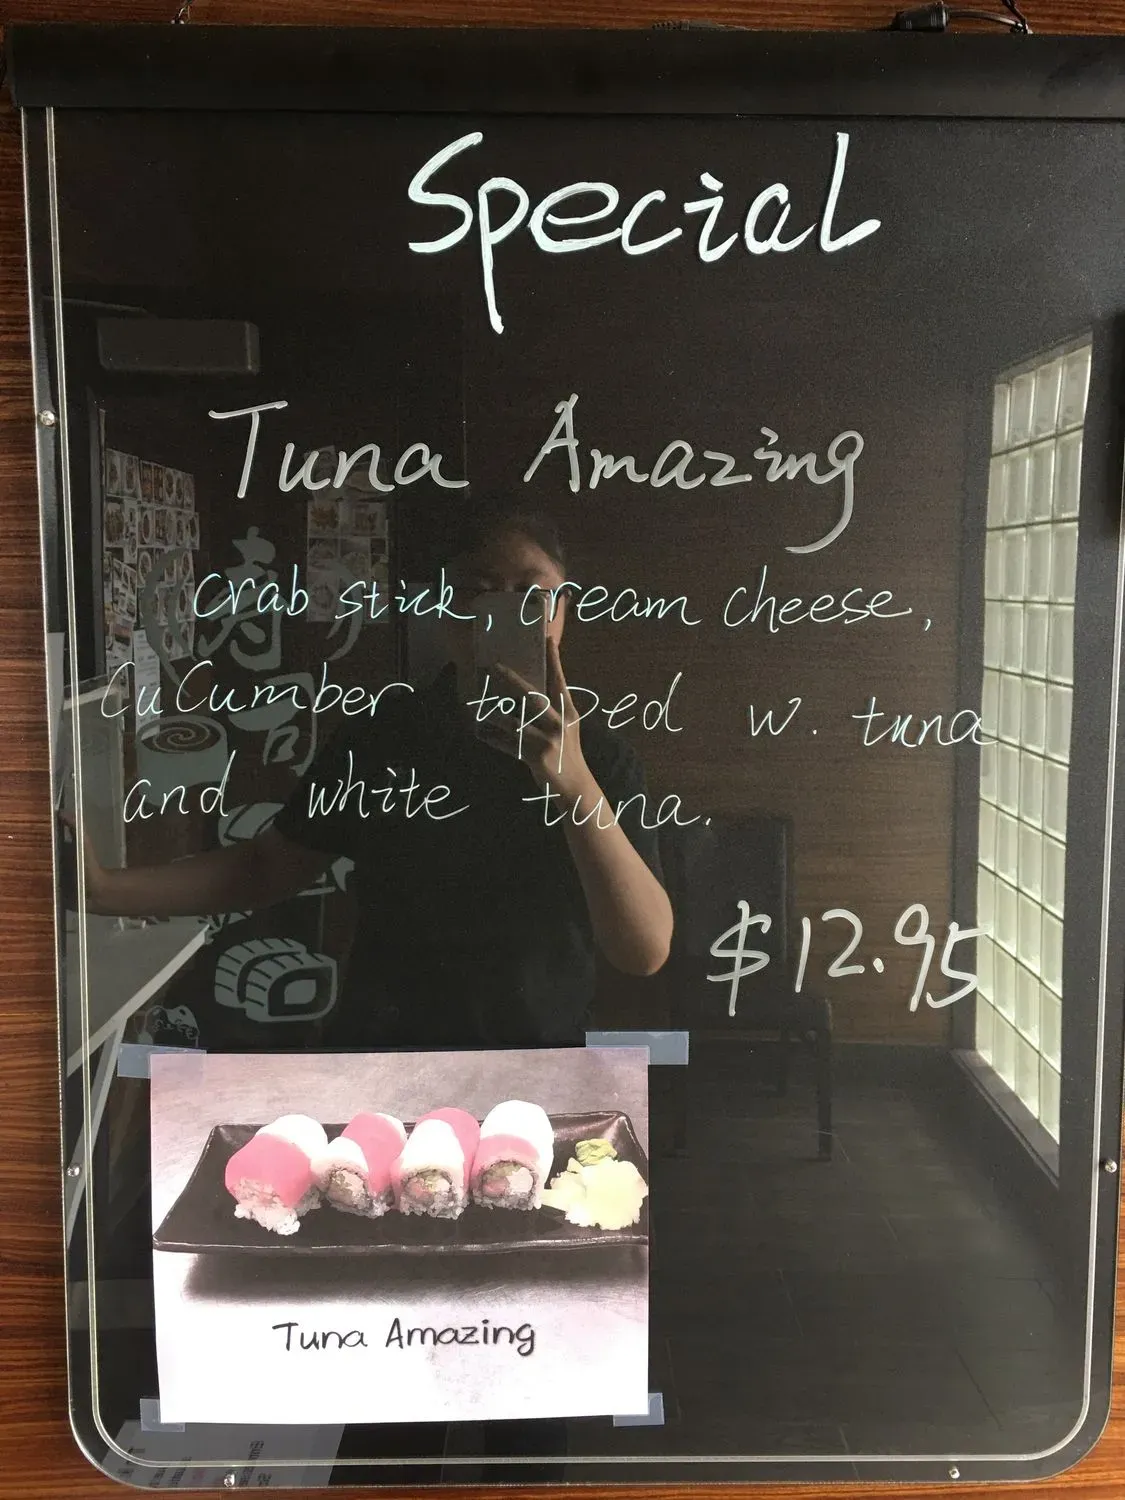 Special
Tuna Amazing
Crab stick, cream cheese,
Cucumber topped w. tuna
and white tuna.
$12.95
寿
司
Tuna Amazing